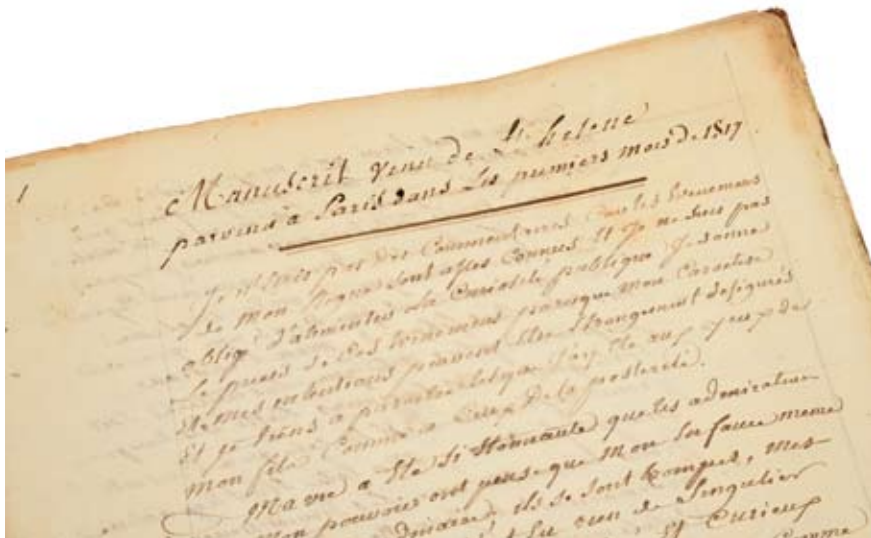 1
Manuscrit venu de St helene
parvenu a Paris dans les premiers mois de 1817
je n'ecris pas des Commentaires Car les Evenemens
de mon Regne sont asses Connus Et je ne suis pas
oblige d'alimenter la Curiosité publique je donne
le precis de Ces Evenemens parceque mon Caractere
Et mes intentions peuvent Etre Etrangement defigurés
Et je tiens a paroitre tel que j'ay Eté aux yeux de
mon fils Comme a Ceux de la posterité.
Ma vie a Eté si Etonnante que les admirateurs
de mon pouvoir ont pensé que mon Enfance meme
ils se sont trompés, mes
rien de Singulier
Curieux